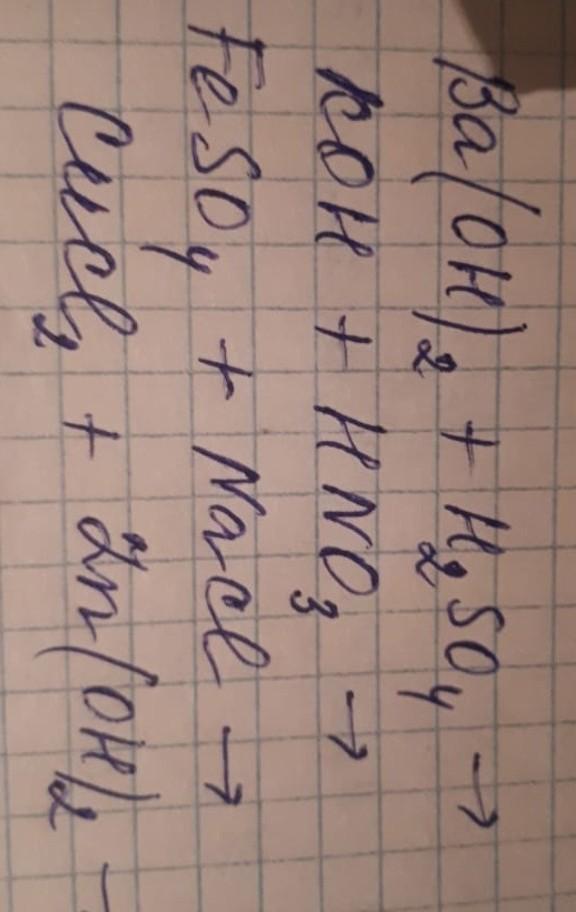 Ba(OH)₂ + H₂SO₄ →
KOH + HNO₃ →
FeSO₄ + NaCl →
CuCl₂ + Zn(OH)₂ →